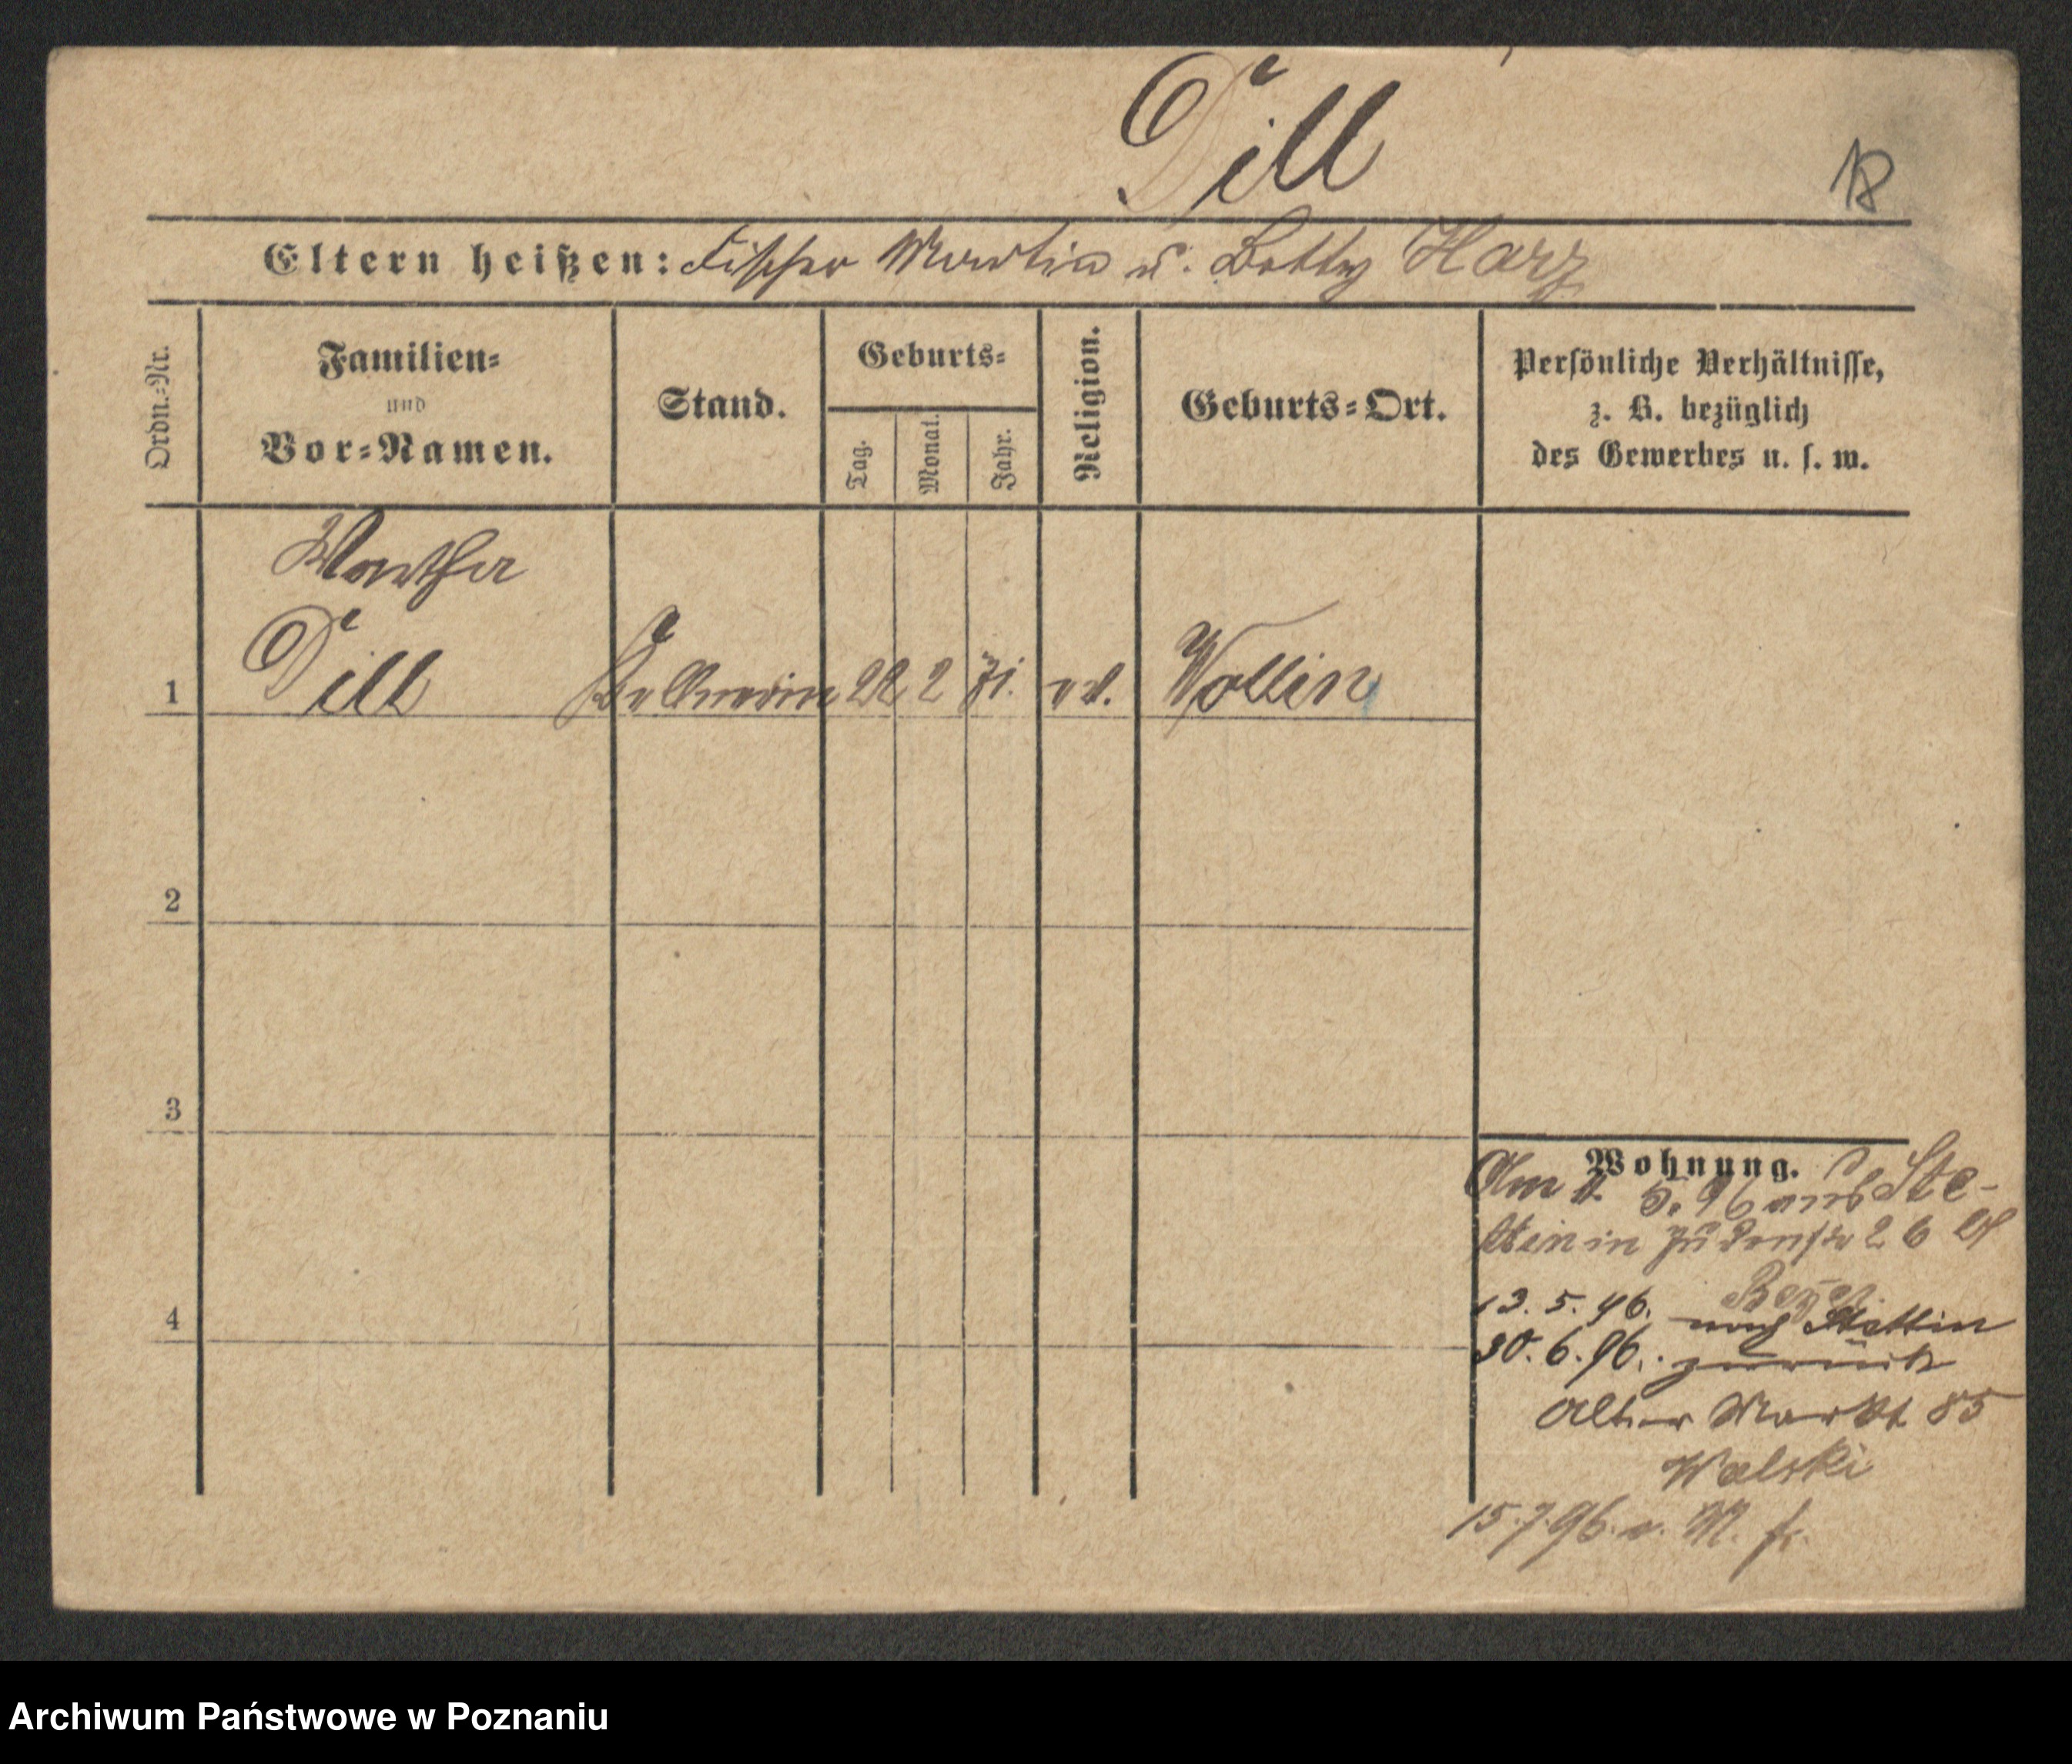 Dill
18
Eltern heißen: Fischer Martin u. Betty Harz
Ordn.-Nr.
Familien-
und
Vor-Namen.
Stand.
Geburts-
Tag.
Monat.
Jahr.
Religion.
Geburts-Ort.
Persönliche Verhältnisse,
z. B. bezüglich
des Gewerbes u. s. w.
Martha
1 Dill Kellnerin 22 2 71. ev. Wollin
2
3
4
Wohnung.
Am 2. 5. 96 aus Ste-
ttin in Judenstr 26
13. 5. 96. nach Stettin
30. 6. 96. zurück
Alter Markt 85
Walski
15.7.96. v. M. fr.
Archiwum Państwowe w Poznaniu